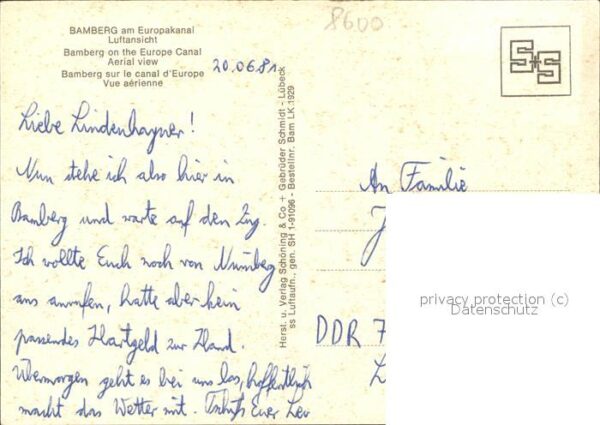 BAMBERG am Europakanal
Luftansicht
Bamberg on the Europe Canal
Aerial view
Bamberg sur le canal d'Europe
Vue aérienne
20.06.81
8600
S+S
Liebe Lindenhayner!
Nun stehe ich also hier in
Bamberg und warte auf den Zug.
Ich wollte Euch noch von Nürnberg
aus anrufen, hatte aber kein
passendes Hartgeld zur Hand.
Übermorgen geht es bei uns los, hoffentlich
macht das Wetter mit. Tschüß Euer
Herst. u. Verlag Schöning & Co + Gebrüder Schmidt - Lübeck
ss Luftaufn., gen. SH 1-91096 - Bestellnr. Bam LK 1929
An Familie
J
DDR 7
L
privacy protection (c)
Datenschutz